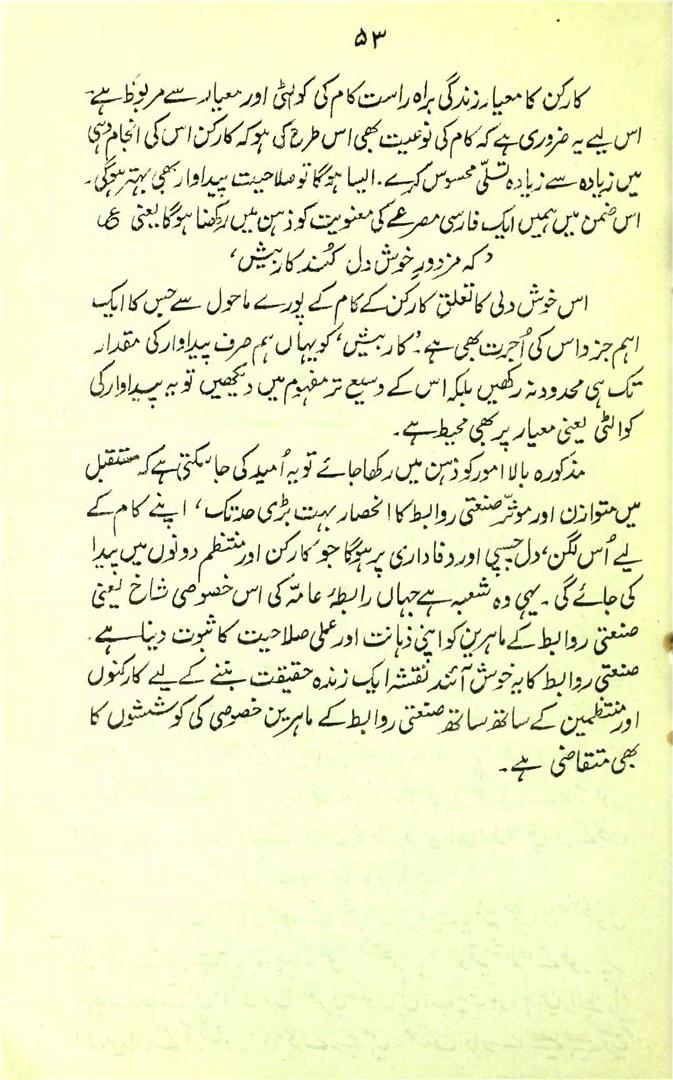 ۵۳
کارکن کا معیار زندگی براہ راست کام کی کوالٹی اور معیار سے مربوط ہے۔
اس لیے یہ ضروری ہے کہ کام کی نوعیت بھی اس طرح کی ہو کہ کارکن اس کی انجام دہی
میں زیادہ سے زیادہ تسلّی محسوس کرے۔ ایسا ہوگا تو صلاحیت پیداوار بھی بہتر ہوگی۔
اس ضمن میں ہمیں ایک فارسی مصرعے کی معنویت کو ذہن میں رکھنا ہوگا یعنی ؏
’کہ مزدورِ خوش دل کُند کار بیش‘
اس خوش دلی کا تعلق کارکن کے کام کے پورے ماحول سے جس کا ایک
اہم جزو اس کی اُجرت بھی ہے۔ ’کار بیش‘ کو یہاں ہم صرف پیداوار کی مقدار
تک ہی محدود نہ رکھیں بلکہ اس کے وسیع تر مفہوم میں دیکھیں تو یہ پیداوار کی
کوالٹی یعنی معیار پر بھی محیط ہے۔
مذکورہ بالا امور کو ذہن میں رکھا جائے تو یہ اُمید کی جا سکتی ہے کہ مستقبل
میں متوازن اور موثّر صنعتی روابط کا انحصار بہت بڑی حد تک، اپنے کام کے
لیے اُس لگن، دل چسپی اور وفاداری پر ہوگا جو کارکن اور منتظم دونوں میں پیدا
کی جائے گی۔ یہی وہ شعبہ ہے جہاں رابطۂ عامّہ کی اس خصوصی شاخ یعنی
صنعتی روابط کے ماہرین کو اپنی ذہانت اور عملی صلاحیت کا ثبوت دینا ہے۔
صنعتی روابط کا یہ خوش آئند نقشہ ایک زندہ حقیقت بننے کے لیے کارکنوں
اور منتظمین کے ساتھ ساتھ صنعتی روابط کے ماہرین خصوصی کی کوششوں کا
بھی متقاضی ہے۔